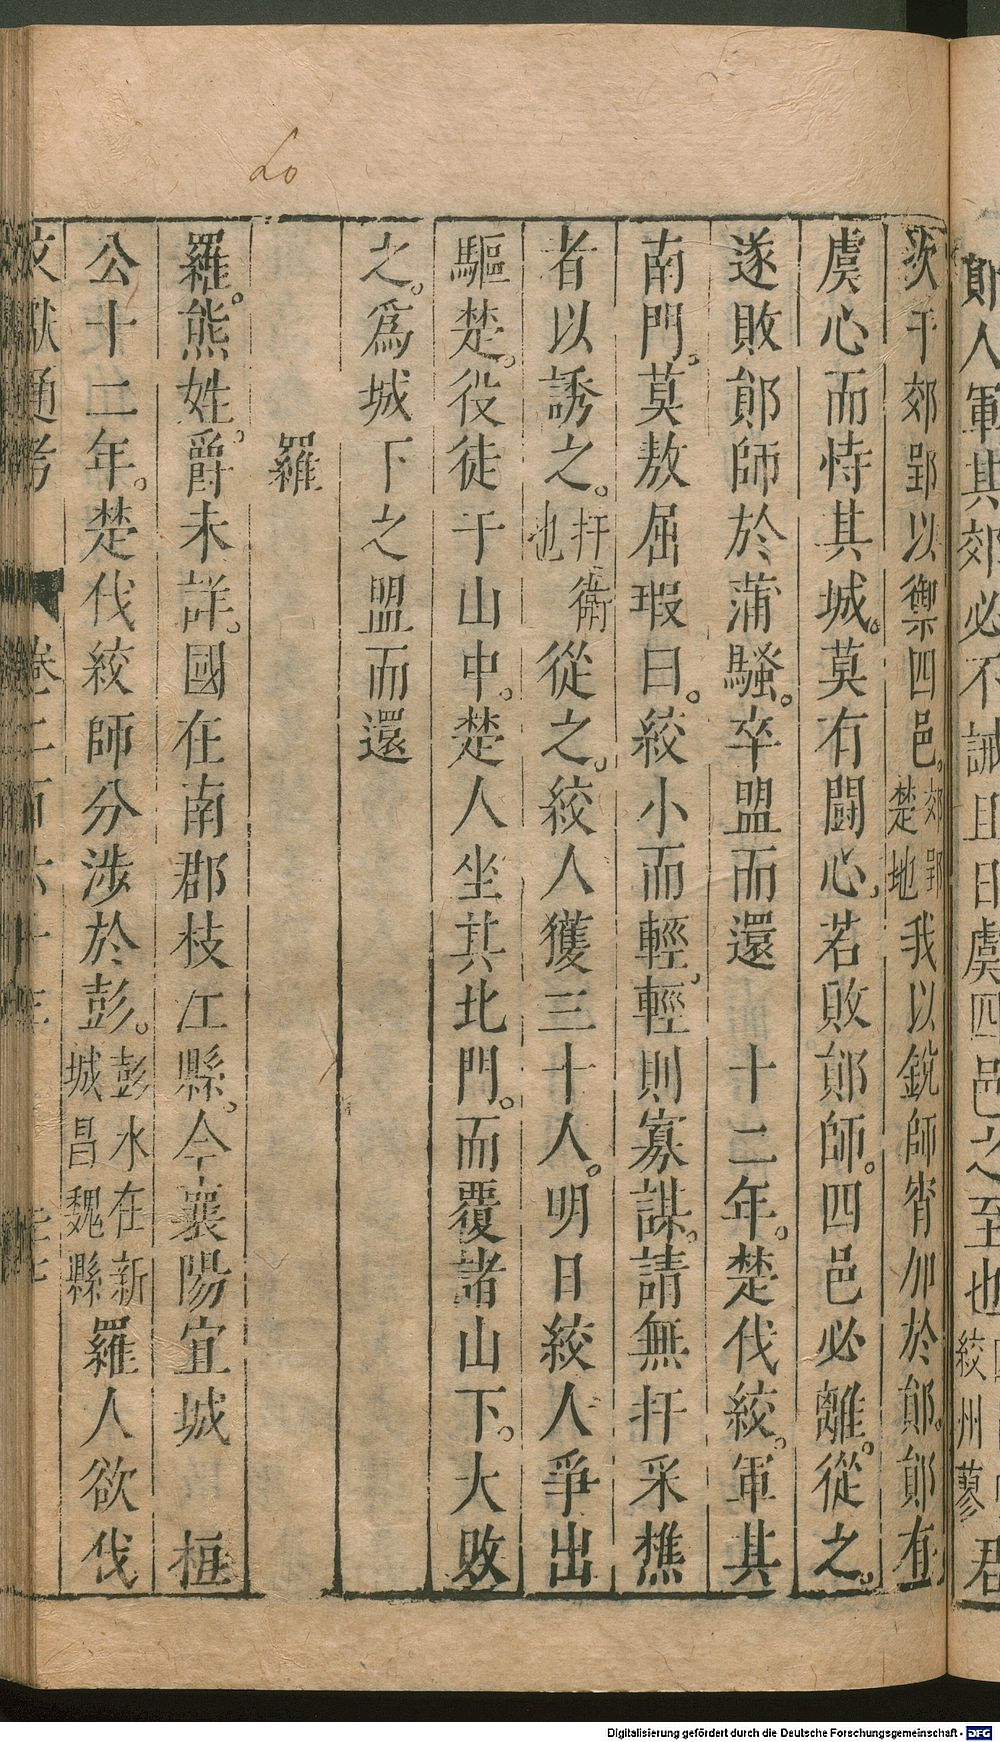 鄖人軍其郊必不誡且日虞四邑之至也
絞州蓼
君
次于郊郢以禦四邑郊郢楚地我以銳師宵加於鄖鄖有
虞心而恃其城莫有鬭心若敗鄖師四邑必離從之
遂敗鄖師於蒲騷卒盟而還 十二年楚伐絞軍其
南門莫敖屈瑕曰絞小而輕輕則寡謀請無扞采樵
者以誘之扞衛也從之絞人獲三十人明日絞人爭出
驅楚役徒于山中楚人坐其北門而覆諸山下大敗
之爲城下之盟而還
羅
羅熊姓爵未詳國在南郡枝江縣今襄陽宜城 桓
公十二年楚伐絞師分涉於彭彭水在新城昌魏縣羅人欲伐
文獻通考 卷二百六十三
20
Digitalisierung gefördert durch die Deutsche Forschungsgemeinschaft - DFG